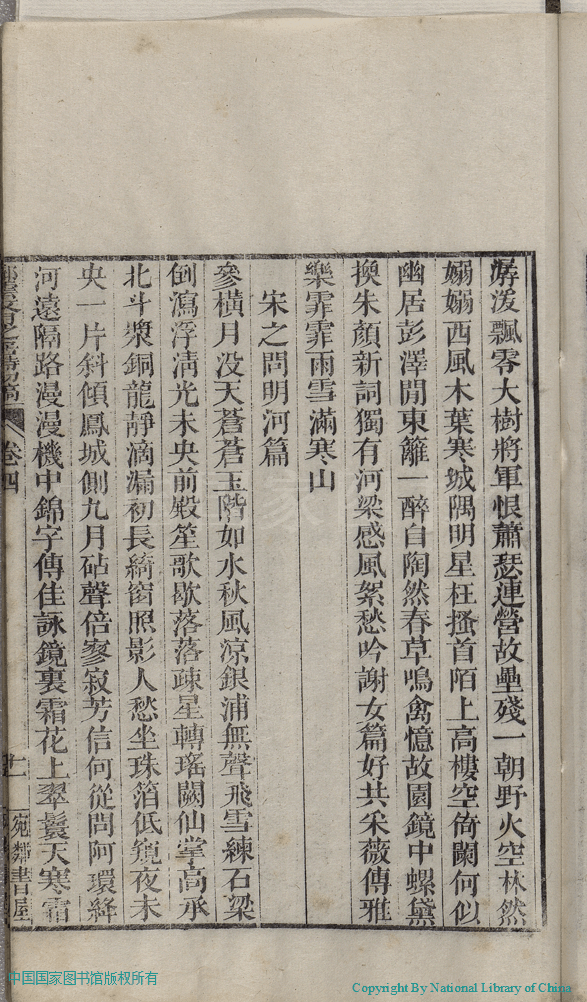 潺湲飄零大樹將軍恨蕭瑟連營故壘殘一朝野火空林然
嫋嫋西風木葉寒城隅明星枉搔首陌上高樓空倚闌何似
幽居彭澤閒東籬一醉自陶然春草鳴禽憶故園鏡中螺黛
換朱顏新詞獨有河梁感風絮愁吟謝女篇好共采薇傳雅
樂霏霏雨雪滿寒山
宋之問明河篇
參橫月没天蒼蒼玉階如水秋風涼銀浦無聲飛雪練石梁
倒瀉浮清光未央前殿笙歌歇落落疎星轉瑤闕仙掌高承
北斗漿銅龍靜滴漏初長綺窗照影人愁坐珠箔低窺夜未
央一片斜傾鳳城側九月砧聲倍寥寂芳信何從問阿環絳
河遠隔路漫漫機中錦字傳佳詠鏡裏霜花上翠鬟天寒霜
卷四
十一
宛鄰書屋
中国国家图书馆版权所有
Copyright By National Library of China